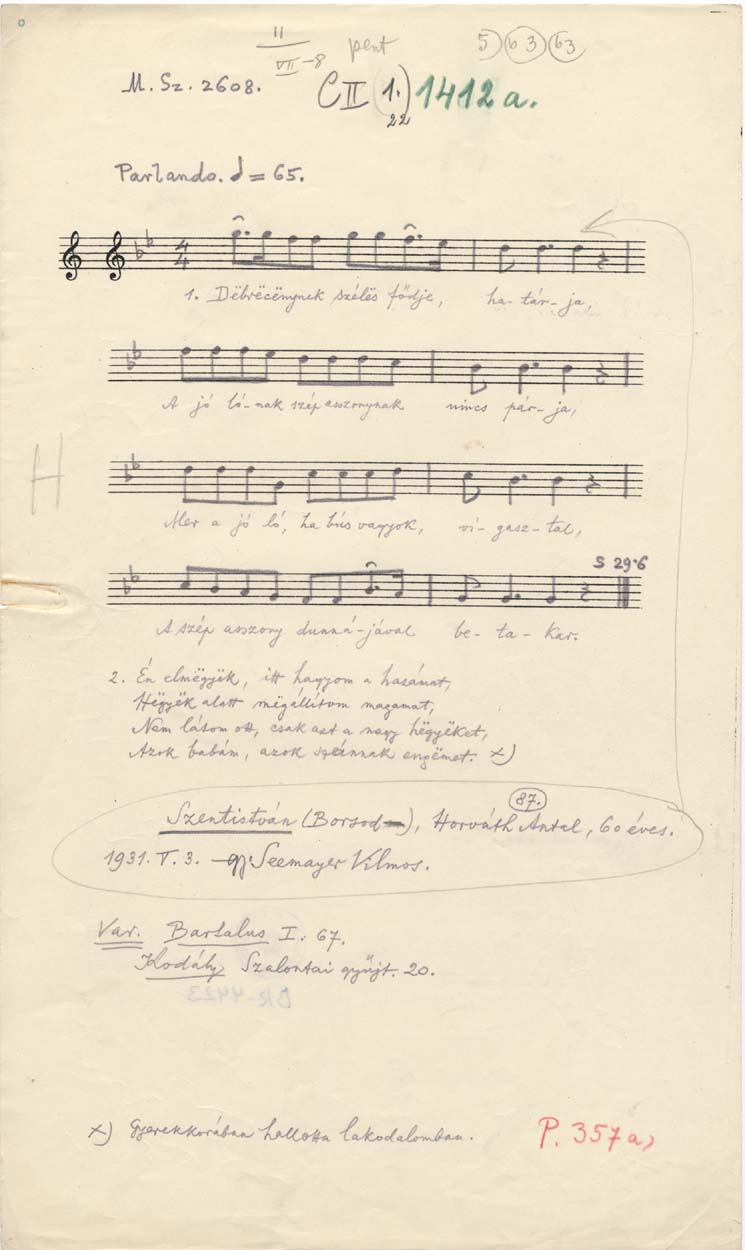 II
VII-8
pent
5) 63) 63
M. Sz. 2608.
C II 1.) 1412 a.
22
Parlando. = 65.
4
4
1. Dëbrëcënynek szélës fődje, ha-tár-ja,
A jó ló-nak szép asszonynak nincs pár-ja,
H
Mer a jó ló, ha bús vagyok, vi-gasz-tal,
S 29·6
A szép asszony dunná-jával be-ta-kar.
2. Én elmëgyëk, itt hagyom a hazámat,
Hëgyëk alatt mëgállítom magamat,
Nem látom ott, csak azt a nagy hëgyëket,
Azok babám, azok szánnak engëmet. x)
87.
Szentistván (Borsod), Horváth Antal, 60 éves.
1931. V. 3. gy. Seemayer Vilmos.
Var. Bartalus I. 67.
Kodály Szalontai gyűjt. 20.
BR-4423
x) Gyerekkorában hallotta lakodalomban.
P. 357a)